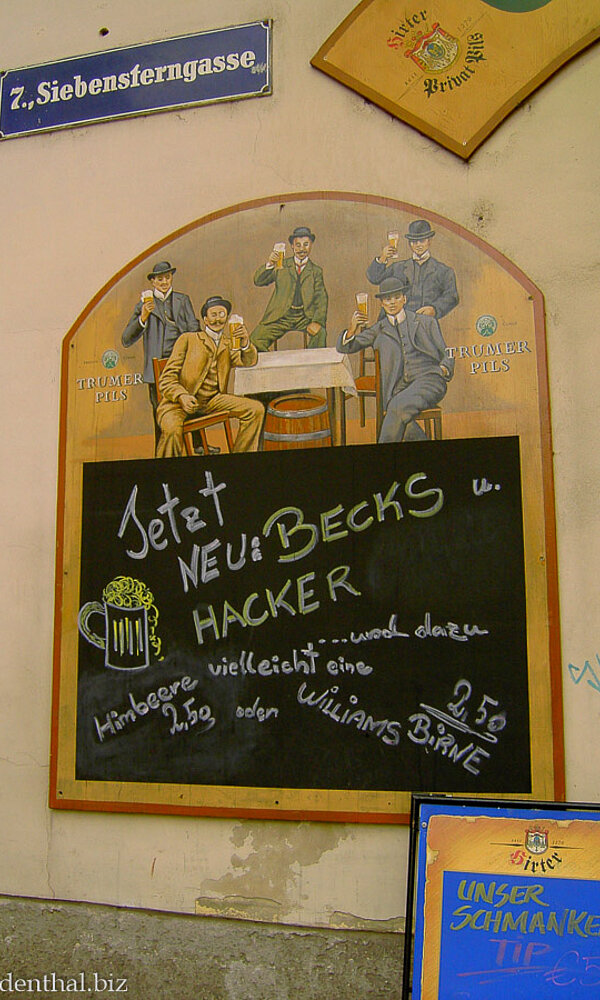 7., Siebensterngasse
Hirter
1270
Privat Pils
TRUMER
PILS
TRUMER
PILS
Jetzt
NEU: BECKS u.
HACKER
...und dazu
vielleicht eine
Himbeere
2,50 oder WILLIAMS BIRNE 2,50
Hirter
1270
UNSER
SCHMANKE
TIP
€5
denthal.biz